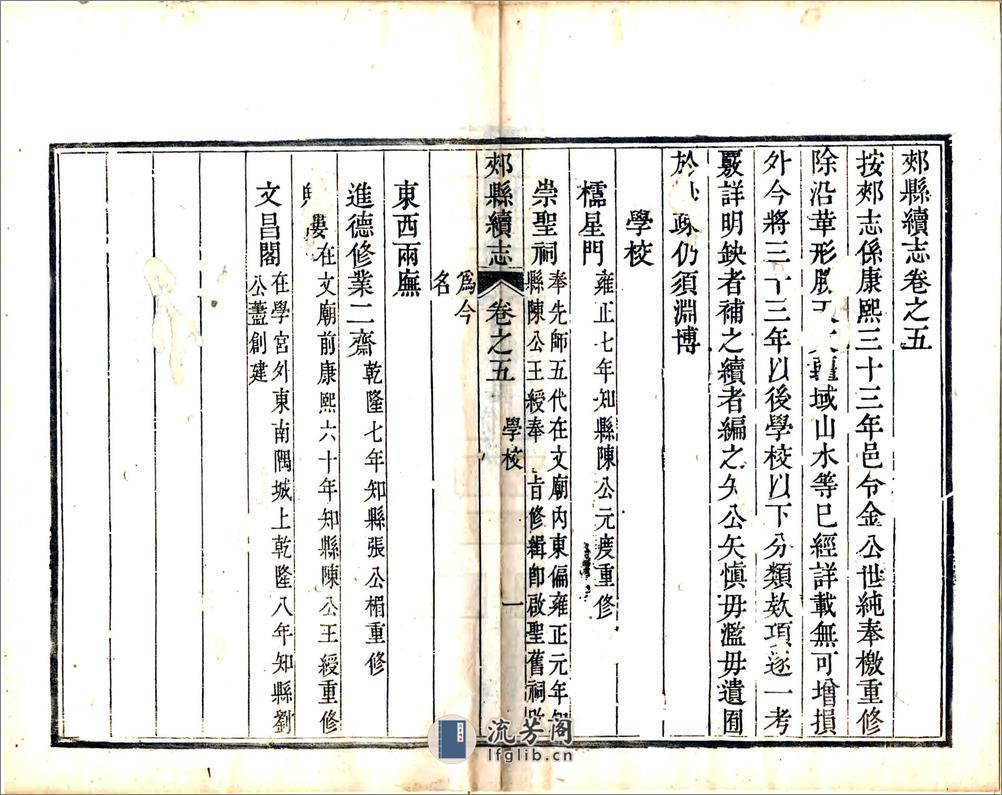 郟縣續志卷之五
按郟志係康熙三十三年邑令金公世純奉檄重修
除沿革形勝疆域山水等已經詳載無可增損
外今將三十三年以後學校以下分類欵項逐一考
覈詳明缺者補之續者編之久公矢慎毋濫毋遺囿
於 仍須淵博
學校
櫺星門 雍正七年知縣陳公元度重修
崇聖祠 奉先師五代在文廟內東偏雍正元年知
縣陳公王綬奉 旨修緝卽啟聖舊祠
郟縣續志 卷之五 學校 一
為今
名
東西兩廡
進德修業二齋 乾隆七年知縣張公楣重修
在文廟前康熙六十年知縣陳公王綬重修
文昌閣 在學宮外東南隅城上乾隆八年知縣劉
公藎創建
流芳阁
lfglib.com